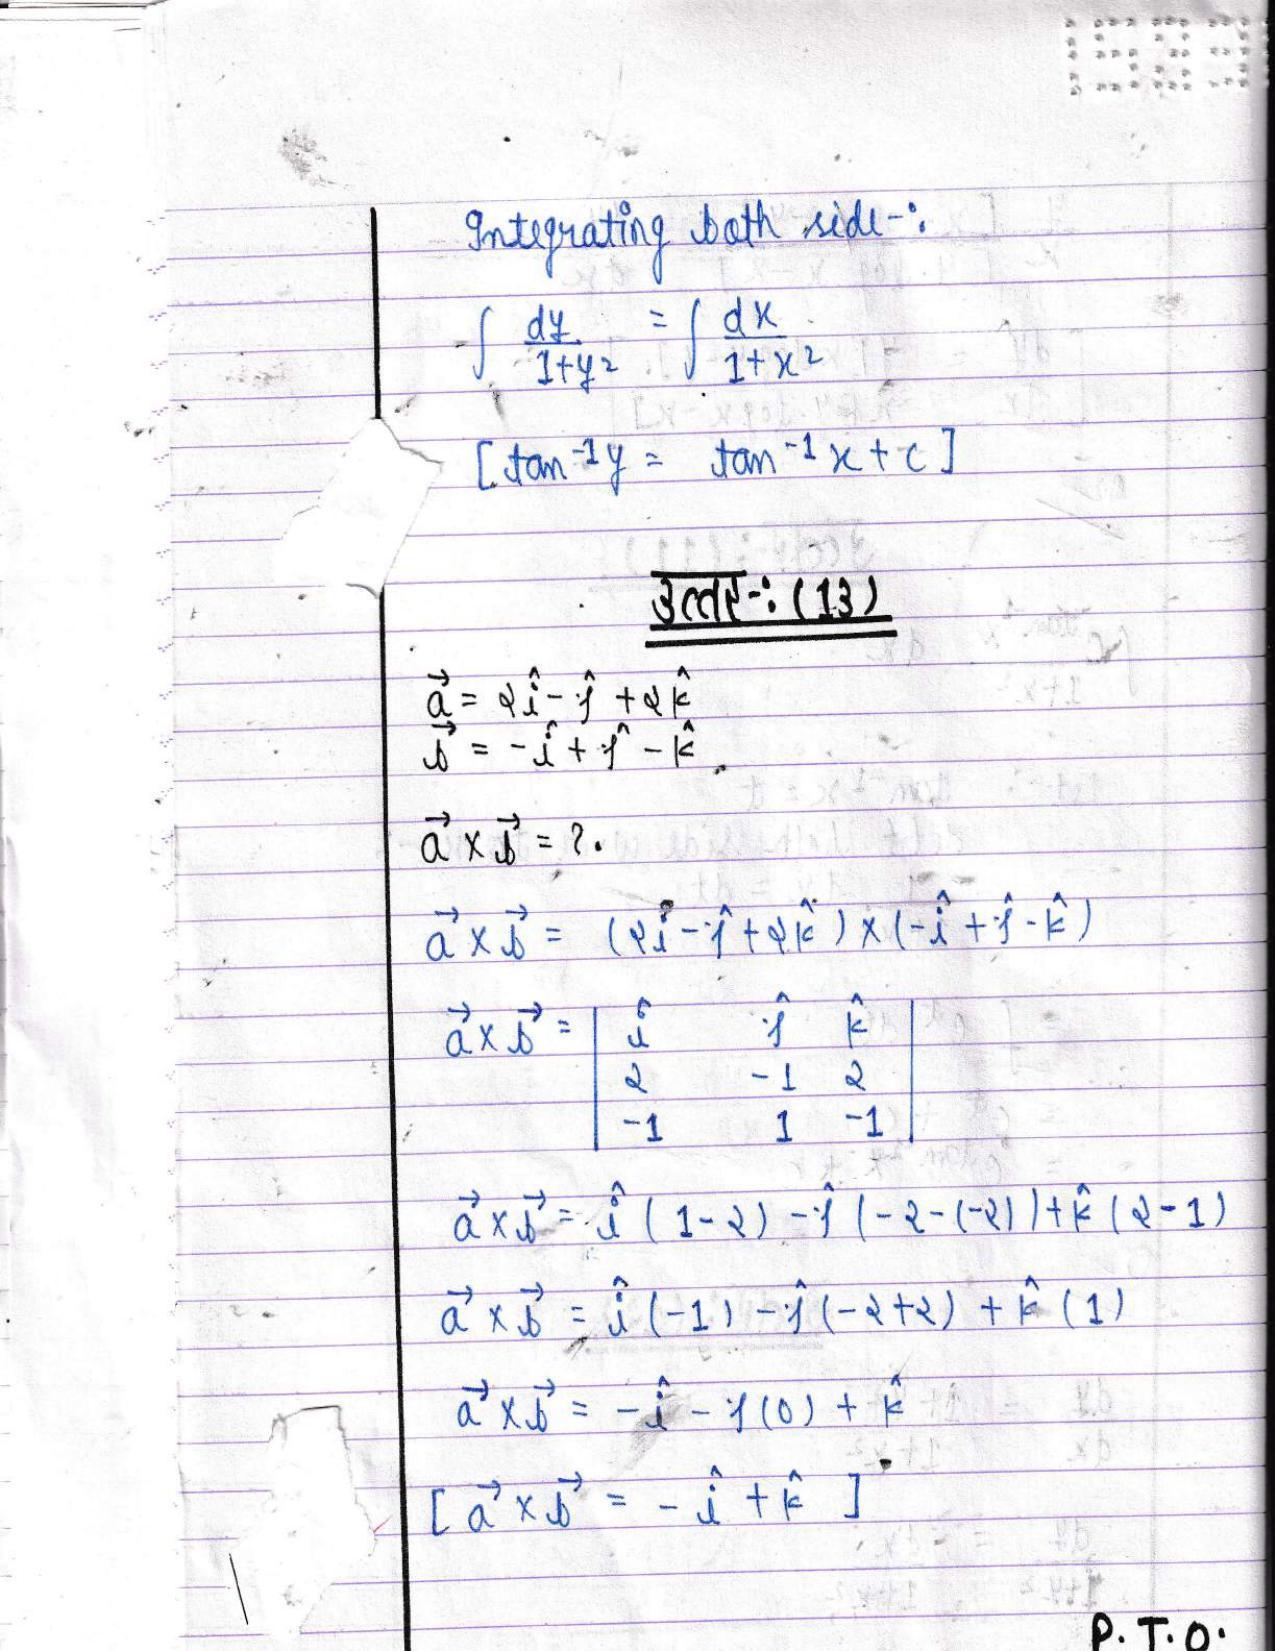 Integrating both side-:
∫ dy/1+y² = ∫ dx/1+x²
[tan⁻¹y = tan⁻¹x + c]
उत्तर-: (13)
a⃗ = 2î - ĵ + 2k̂
b⃗ = -î + ĵ - k̂
a⃗ × b⃗ = ?.
a⃗ × b⃗ = (2î - ĵ + 2k̂) × (-î + ĵ - k̂)
a⃗ × b⃗ = | î ĵ k̂ |
2 -1 2
-1 1 -1
a⃗ × b⃗ = î (1-2) - ĵ (-2-(-2)) + k̂ (2-1)
a⃗ × b⃗ = î (-1) - ĵ (-2+2) + k̂ (1)
a⃗ × b⃗ = -î - j(0) + k̂
[a⃗ × b⃗ = -î + k̂]
P.T.O.